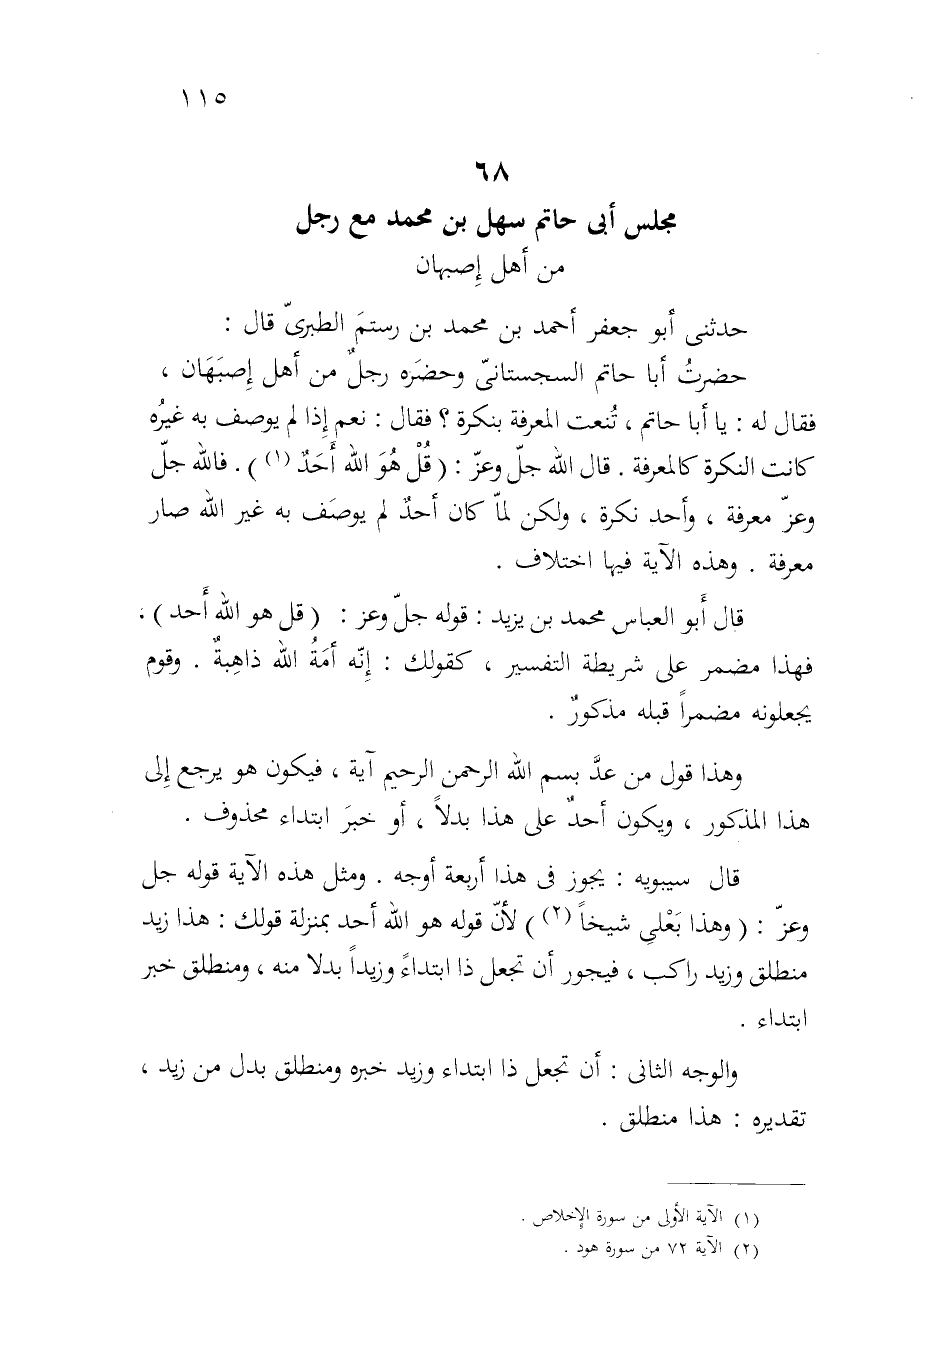 ١١٥
٦٨
مجلس أبى حاتم سهل بن محمد مع رجل
من أهل إِصبهان
حدثنى أبو جعفر أحمد بن محمد بن رستمَ الطبرىّ قال :
حضرتُ أبا حاتم السجستانىّ وحضَره رجلٌ من أهل إِصبَهَان ،
فقال له : يا أبا حاتم ، تُنعت المعرفة بنكرة ؟ فقال : نعم إِذا لم يوصف به غيرُه
كانت النكرة كالمعرفة . قال الله جلّ وعزّ : ( قُلْ هُوَ الله أَحَدٌ (١) ) . فالله جلّ
وعزّ معرفة ، وأحد نكرة ، ولكن لمّا كان أحدٌ لم يوصَف به غير الله صار
معرفة . وهذه الآية فيها اختلاف .
قال أَبو العباس محمد بن يزيد : قوله جلّ وعز : ( قل هو الله أَحد ) .
فهذا مضمر على شريطة التفسير ، كقولك : إِنّه أمَةُ الله ذاهبةٌ . وقوم
يجعلونه مضمراً قبله مذكورٌ .
وهذا قول من عدَّ بسم الله الرحمن الرحيم آية ، فيكون هو يرجع إِلى
هذا المذكور ، ويكون أحدٌ على هذا بدلاً ، أو خبرَ ابتداء محذوف .
قال سيبويه : يجوز فى هذا أربعة أوجه . ومثل هذه الآية قوله جل
وعزّ : ( وهذا بَعْلي شيخاً (٢) ) لأنّ قوله هو الله أحد بمنزلة قولك : هذا زيد
منطلق وزيد راكب ، فيجور أن تجعل ذا ابتداءً وزيداً بدلا منه ، ومنطلق خبر
ابتداء .
والوجه الثانى : أن تجعل ذا ابتداء وزيد خبره ومنطلق بدل من زيد ،
تقديره : هذا منطلق .
(١) الآية الأولى من سورة الإِخلاص .
(٢) الآية ٧٢ من سورة هود .